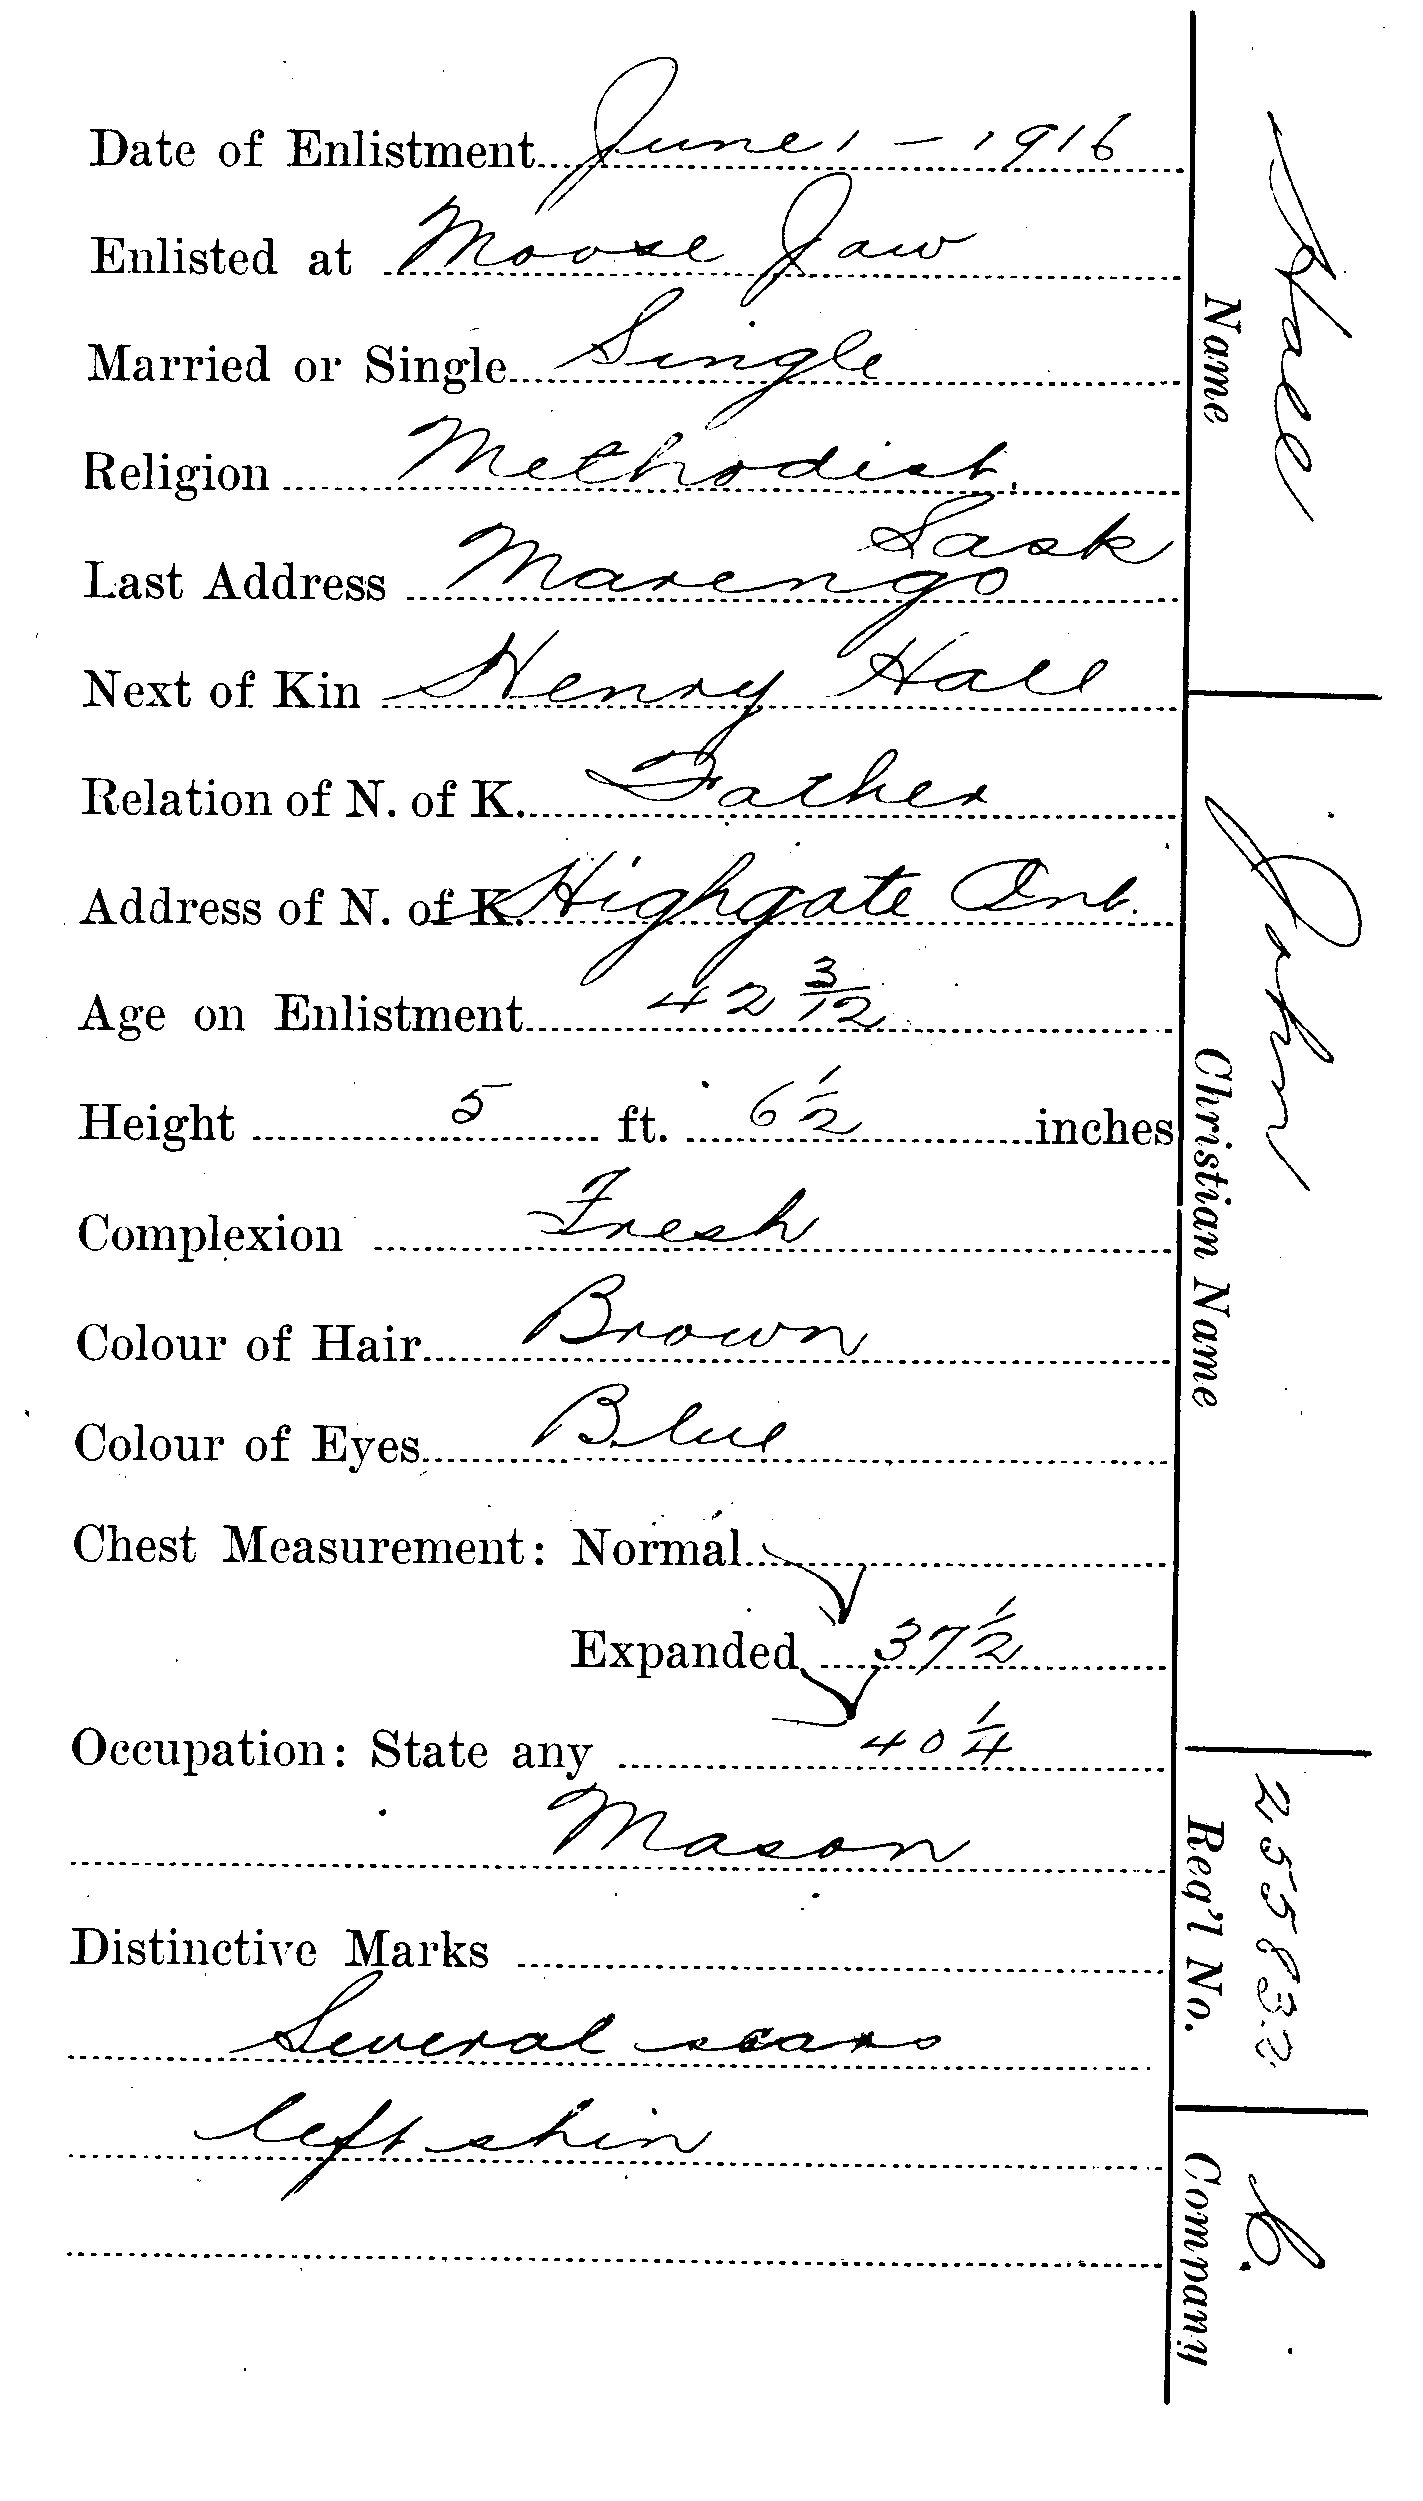 Date of Enlistment June 1 - 1916
Enlisted at Moose Jaw
Married or Single Single
Religion Methodist.
Sask
Last Address Marengo
Next of Kin Henry Hall
Relation of N. of K. Father
Address of N. of K. Highgate Ont.
Age on Enlistment 42 3/12
Height 5 ft. 6 1/2 inches
Complexion Fresh
Colour of Hair Brown
Colour of Eyes Blue
Chest Measurement: Normal
Expanded 37 1/2
Occupation: State any 40 1/4
Mason
Distinctive Marks
Several scars
left shin
Hall
Name
John
Christian Name
255832
Reg'l No.
C.
Company